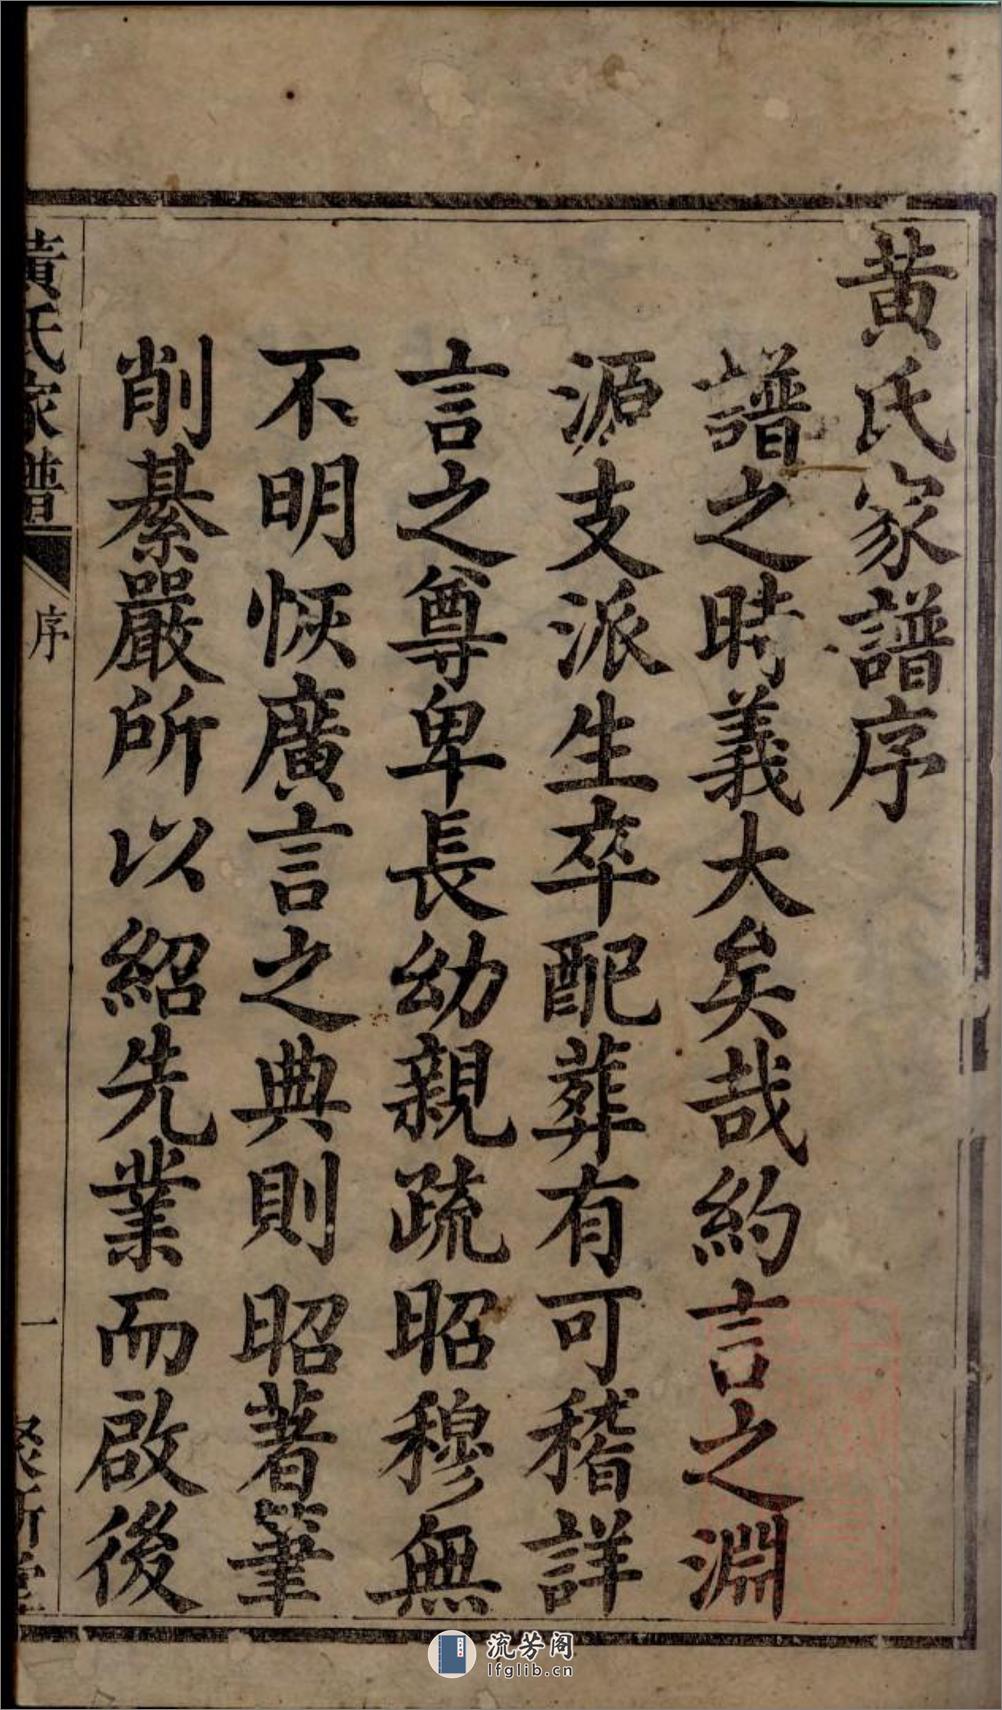 黄氏家譜序
譜之時義大矣哉約言之淵
源支派生卒配葬有可稽詳
言之尊卑長幼親疏昭穆無
不明恢廣言之典則昭著筆
削綦嚴所以紹先業而啟後
黃氏家譜
序
一
流芳阁
lfglib.cn